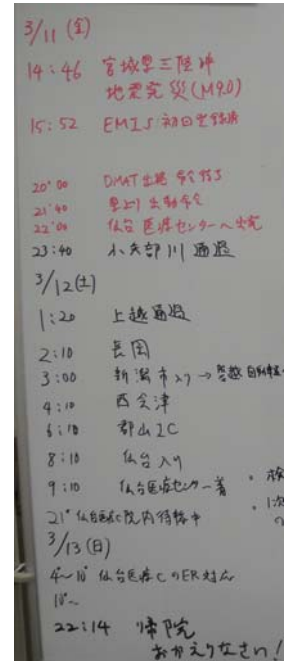 3/11 (金)
14:46 宮城県三陸沖
地震発災(M9.0)
15:52 EMIS初回登録済
20°00 DMAT出動 命令
21°40 出動命令
22°00 仙台医療センターへ出発
23:40 小矢部川通過
3/12(土)
1:20 上越通過
2:10 長岡
3:00 新潟市入り→磐越自動車
4:10 西会津
6:10 郡山IC
8:10 仙台入り
9:10 仙台医療センター着
21° 仙台医療C院内待機中
1次
3/13(日)
4°~10° 仙台医療CのER対応
10°~
22:14 帰院
おかえりなさい!